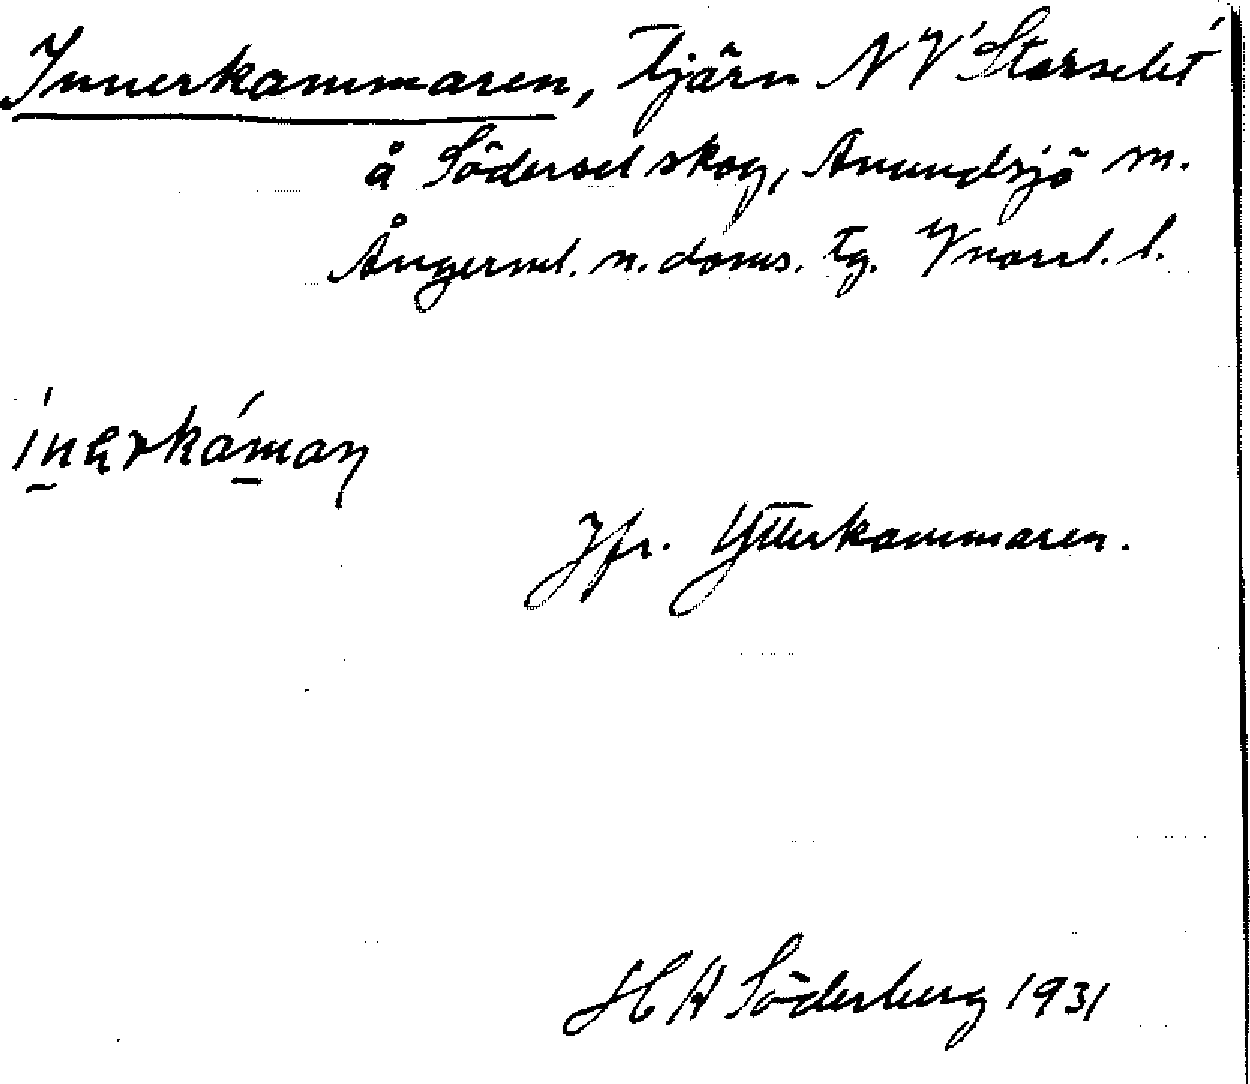 Innerkammaren, Tjärn NV 'Storselet'
å Södersel skog, Anundsjö sn.
Ångerml. n. doms. tg. Vnorrl. l.
Jfr. Ytterkammaren.
H A Söderberg 1931